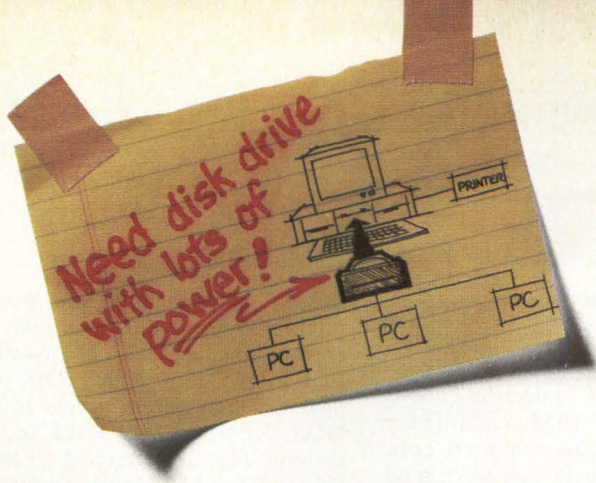 Need disk drive
with lots of
power!
PRINTER
PC
PC
PC